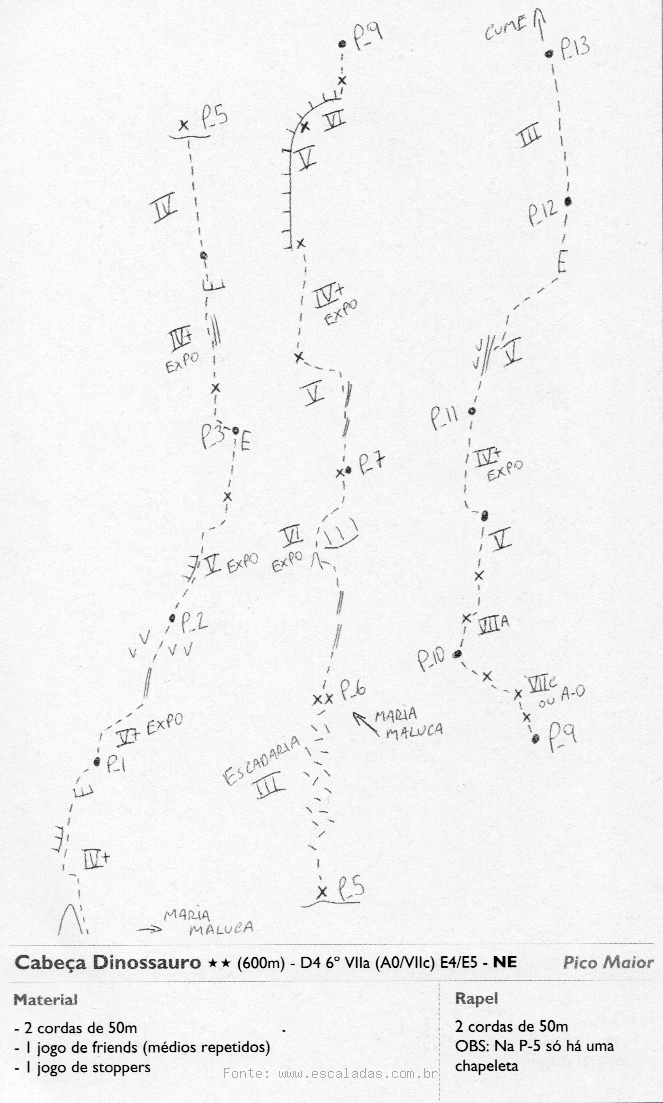 P_5
IV
IV+
EXPO
P_3
E
V EXPO
P_2
V+ EXPO
P_1
IV+
MARIA
MALUCA
P_9
VI
V
IV+
EXPO
V
P_7
VI
EXPO
P_6
MARIA
MALUCA
ESCADARIA
III
P_5
CUME
P_13
III
P_12
E
V
P_11
IV+
EXPO
V
VIIA
P_10
VIIc
OU A-0
P_9
Cabeça Dinossauro ★★ (600m) - D4 6º VIIa (A0/VIIc) E4/E5 - NE Pico Maior
Material
- 2 cordas de 50m
- 1 jogo de friends (médios repetidos)
- 1 jogo de stoppers
Rapel
2 cordas de 50m
OBS: Na P-5 só há uma
chapeleta
Fonte: www.escaladas.com.br